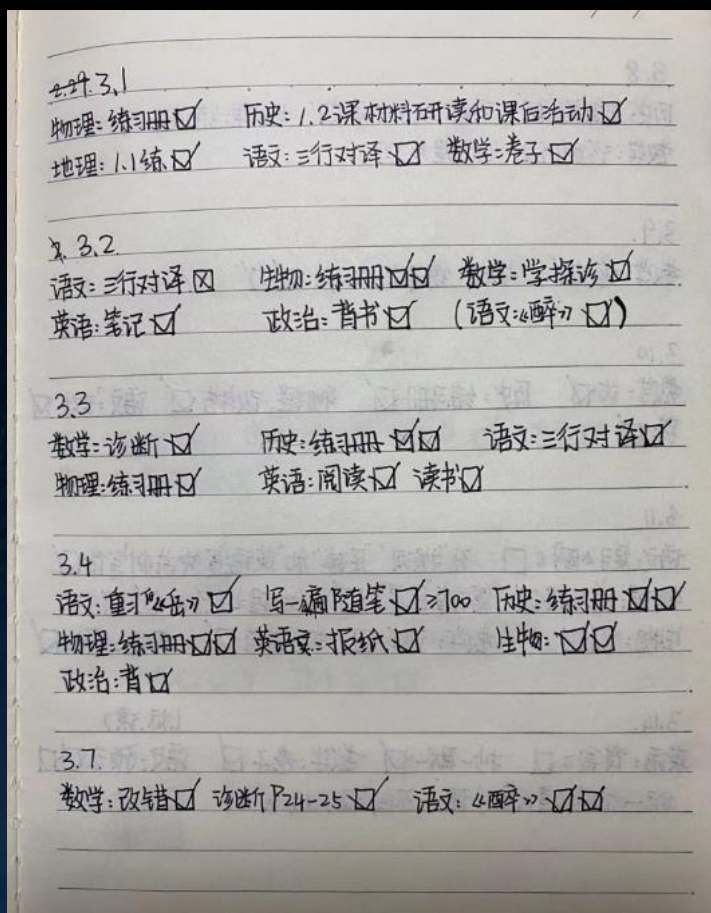 3.1
物理：练习册☑ 历史：1.2课材料研读和课后活动☑
地理：1.1练☑ 语文：三行对译☑ 数学：卷子☑
3.2
语文：三行对译☒ 生物：练习册☑☑ 数学：学探诊☑
英语：笔记☑ 政治：背书☑ （语文：《醉》☑）
3.3
数学：诊断☑ 历史：练习册☑☑ 语文：三行对译☑
物理：练习册☑ 英语：阅读☑ 读书☑
3.4
语文：重习《岳》☑ 写一遍随笔☑≥700 历史：练习册☑☑
物理：练习册☑☑ 英语：报纸☑ 生物：☑☑
政治：背☑
3.7
数学：改错☑ 诊断P24-25☑ 语文：《醉》☑☑